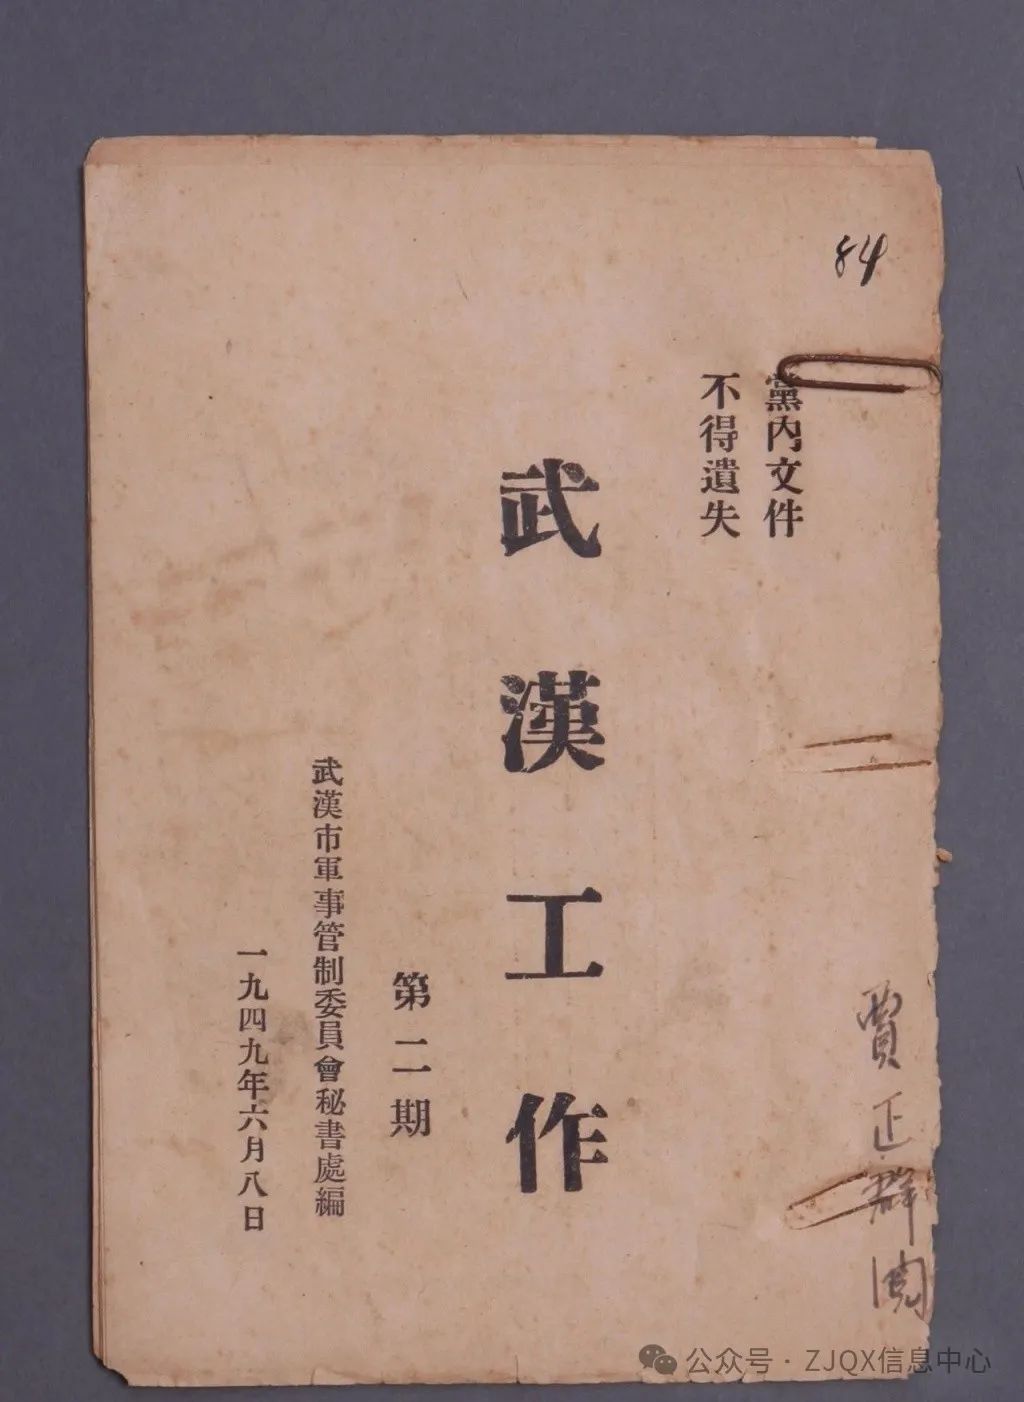 84
黨內文件
不得遺失
武漢工作
第二期
武漢市軍事管制委員會秘書處編
一九四九年六月八日
賈正群閱
公众号·ZJQX信息中心